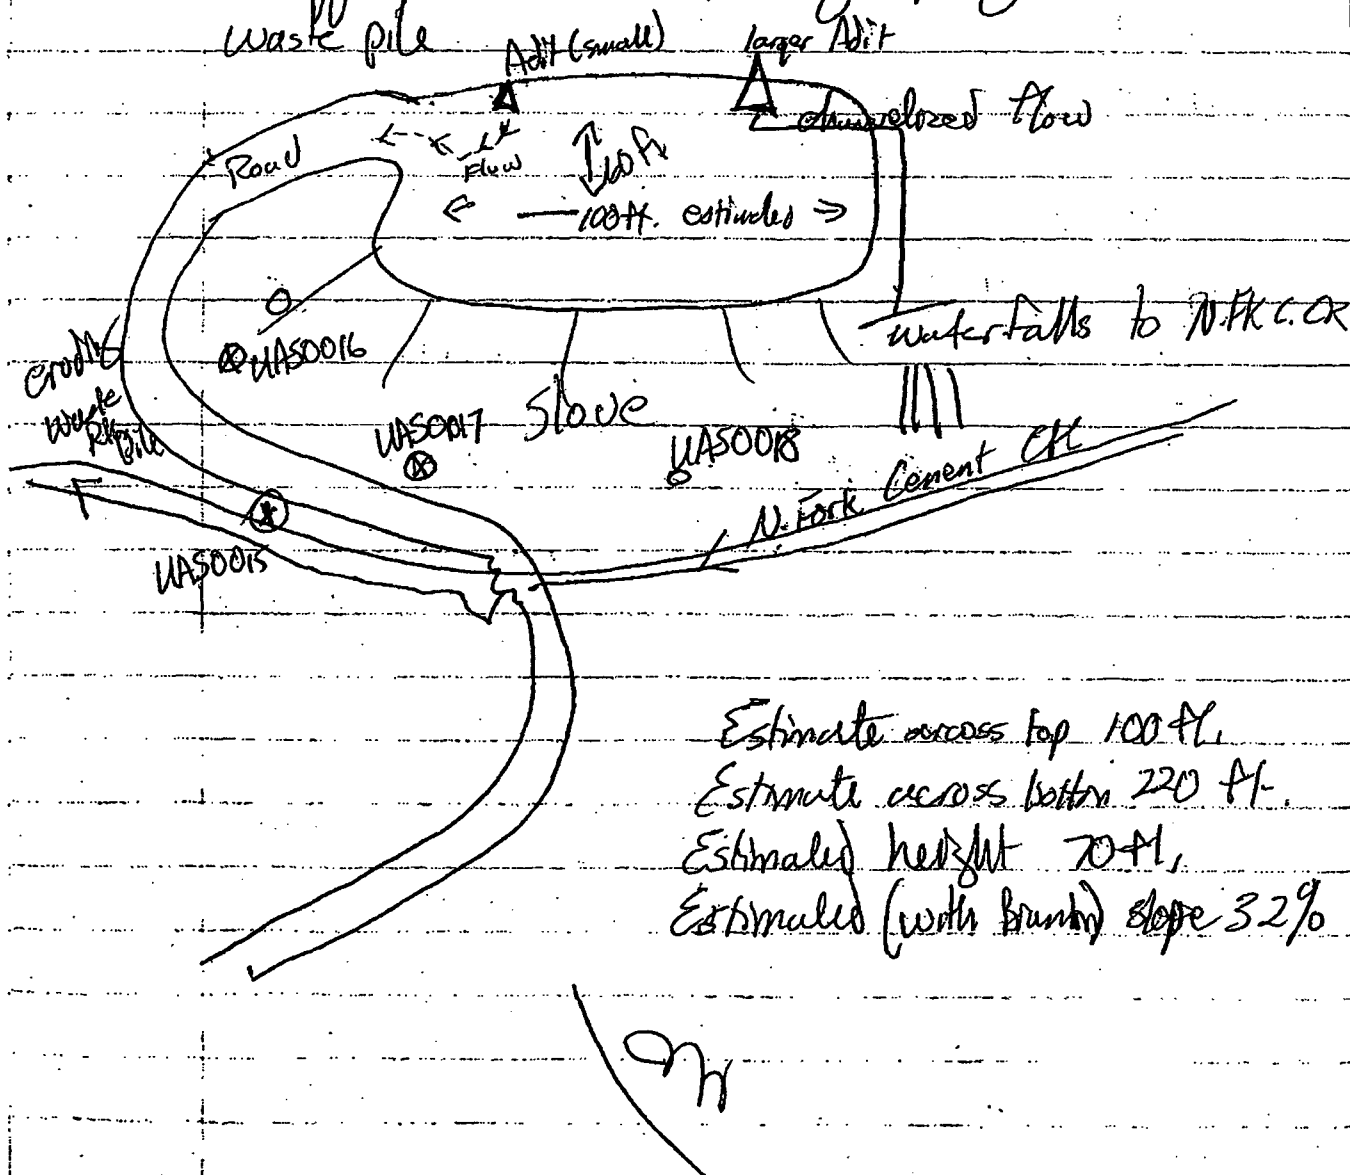 waste pile
Adit (small)
larger Adit
channelized flow
Road
Flow
100 ft. estimated
waterfalls to N.FK C. CR
UAS0016
eroding
waste
Rk pile
UAS0017
Slope
UAS0018
N. Fork Cement CK
UAS0015
Estimate across top 100 ft.
Estimate across bottom 220 ft.
Estimated height 70 ft.
Estimated (with Brunton) slope 32%